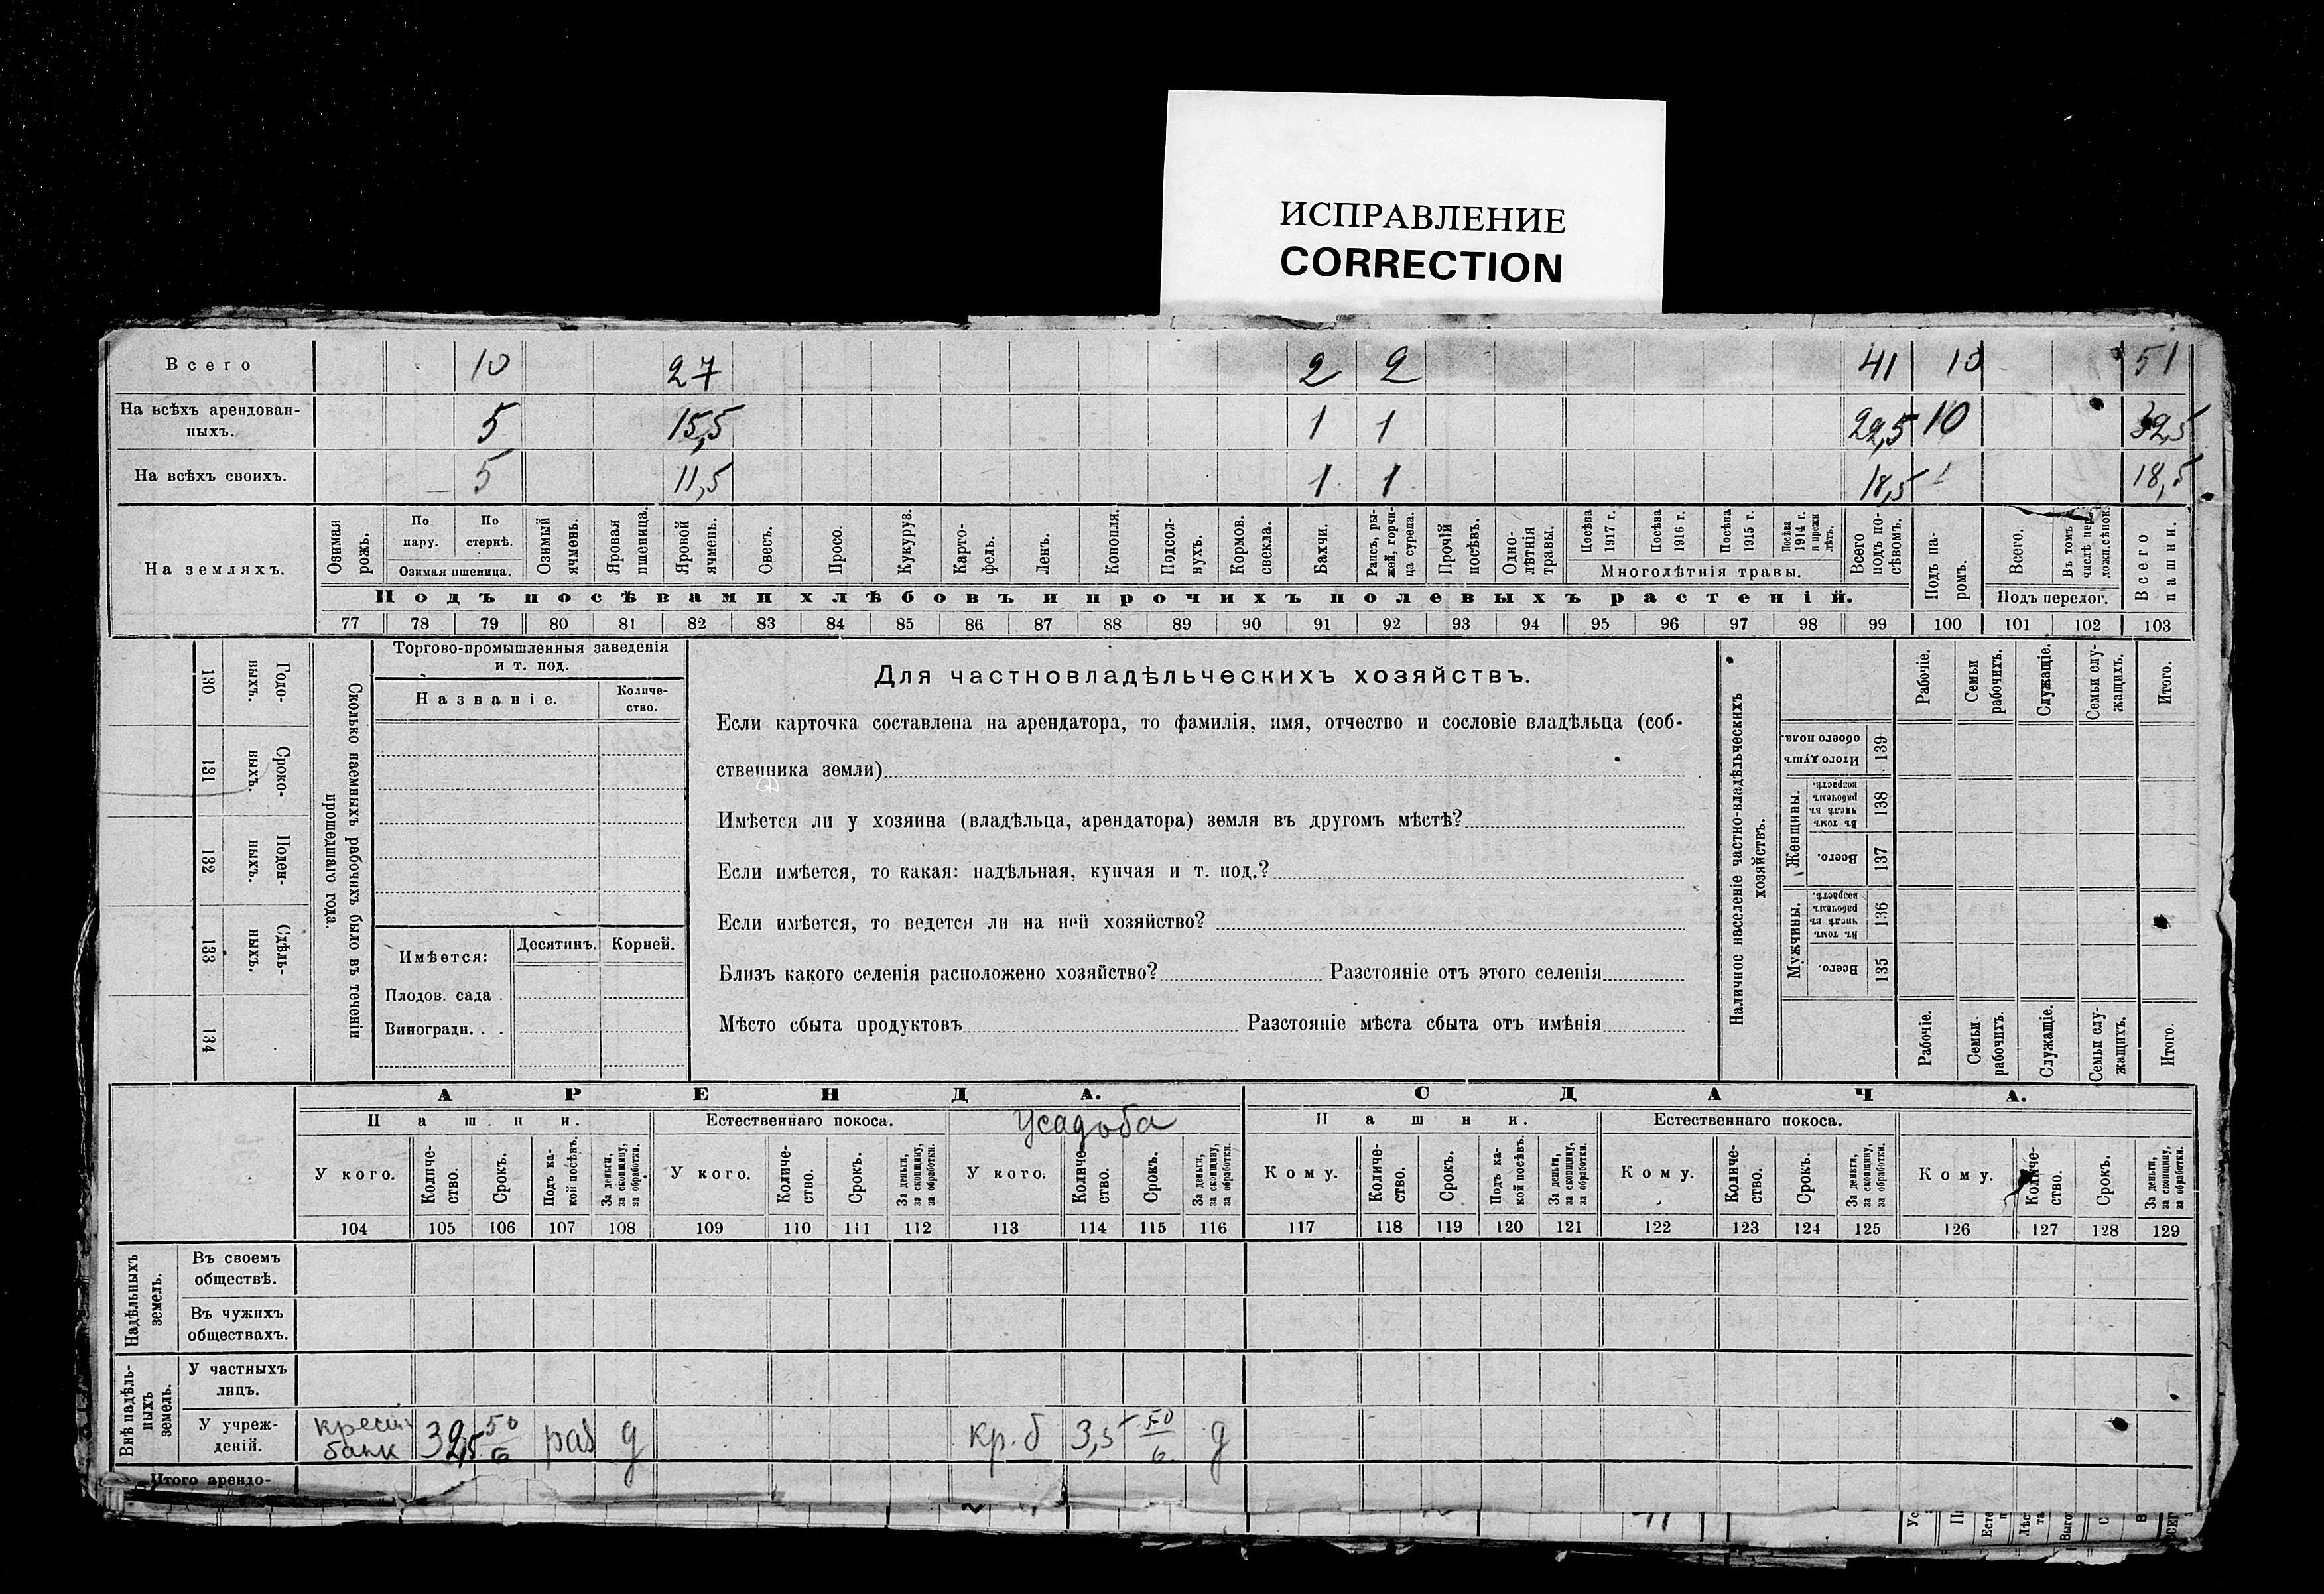 ИСПРАВЛЕНИЕ
CORRECTION
Всего 10 27 2 2 41 10 51
На всѣхъ арендован-
ныхъ. 5 15,5 1 1 22,5 10 32,5
На всѣхъ своихъ. 5 11,5 1 1 18,5 18,5
На земляхъ.
Озимая рожь.
По пару.
По стернѣ.
Озимая пшеница.
Озимый ячмень.
Яровая пшеница.
Яровой ячмень.
Овесъ.
Просо.
Кукуруз.
Карто-
фель.
Ленъ.
Конопля.
Подсол-
нухъ.
Кормов.
свекла.
Бахчи.
Рапсъ, ры-
жей, горчи-
ца сурепа.
Прочій
посѣвъ.
Одно-
лѣтнія
травы.
Посѣва
1917 г.
Посѣва
1916 г.
Посѣва
1915 г.
Посѣва
1914 г.
и прежн
лѣтъ.
Многолѣтнія травы.
Всего
подъ по-
сѣвомъ.
Подъ па-
ромъ.
Всего.
Въ томъ
числѣ пер.
ложн.сѣнок.
Подъ перелог.
Всего
пашни.
Подъ посѣвами хлѣбовъ и прочихъ полевыхъ растеній.
77 78 79 80 81 82 83 84 85 86 87 88 89 90 91 92 93 94 95 96 97 98 99 100 101 102 103
130
Годо-
выхъ.
131
Сроко-
выхъ.
132
Поден-
ныхъ.
133
Сдѣль-
ныхъ.
134
Сколько наемныхъ рабочихъ было въ теченіи
прошедшаго года.
Торгово-промышленныя заведенія
и т. под.
Названіе.
Количе-
ство.
Имѣется:
Десятинъ.
Корней.
Плодов. сада .
Виноградн. . .
Для частновладѣльческихъ хозяйствъ.
Если карточка составлена на арендатора, то фамилія, имя, отчество и сословіе владѣльца (соб-
ственника земли)
Имѣется ли у хозяина (владѣльца, арендатора) земля въ другомъ мѣстѣ?
Если имѣется, то какая: надѣльная, купчая и т. под.?
Если имѣется, то ведется ли на ней хозяйство?
Близъ какого селенія расположено хозяйство? Разстояніе отъ этого селенія
Мѣсто сбыта продуктовъ Разстояніе мѣста сбыта отъ имѣнія
Наличное населеніе частно-владѣльческихъ
хозяйствъ.
Рабочіе.
Семьи
рабочихъ.
Служащіе.
Семьи слу-
жащихъ.
Итого.
Итого душъ
обоего пола.
139
Женщины.
Въ томъ
числѣ въ
рабочемъ
возрастѣ.
138
Всего.
137
Мужчины.
Въ томъ
числѣ въ
рабочемъ
возрастѣ.
136
Всего.
135
Рабочіе.
Семьи
рабочихъ.
Служащіе.
Семьи слу-
жащихъ.
Итого.
АРЕНДА. СДАЧА.
Пашни. Естественнаго покоса. Усадьба Пашни. Естественнаго покоса.
У кого.
Количе-
ство.
Срокъ.
Подъ ка-
кой посѣвъ.
За деньги,
за скопщину,
за обработки.
У кого.
Количе-
ство.
Срокъ.
За деньги,
за скопщину,
за обработки.
У кого.
Количе-
ство.
Срокъ.
За деньги,
за скопщину,
за обработки.
Кому.
Количе-
ство.
Срокъ.
Подъ ка-
кой посѣвъ.
За деньги,
за скопщину,
за обработки.
Кому.
Количе-
ство.
Срокъ.
За деньги,
за скопщину,
за обработки.
Кому.
Количе-
ство.
Срокъ.
За деньги,
за скопщину,
за обработки.
104 105 106 107 108 109 110 111 112 113 114 115 116 117 118 119 120 121 122 123 124 125 126 127 128 129
Надѣльныхъ
земель.
Въ своемъ
обществѣ.
Въ чужихъ
обществахъ.
Внѣ надѣль-
ныхъ
земель.
У частныхъ
лицъ.
У учреж-
деній.
крест
банк 32,5 50/6 раз д кр. б 3,5 50/6 д
Итого арендо-